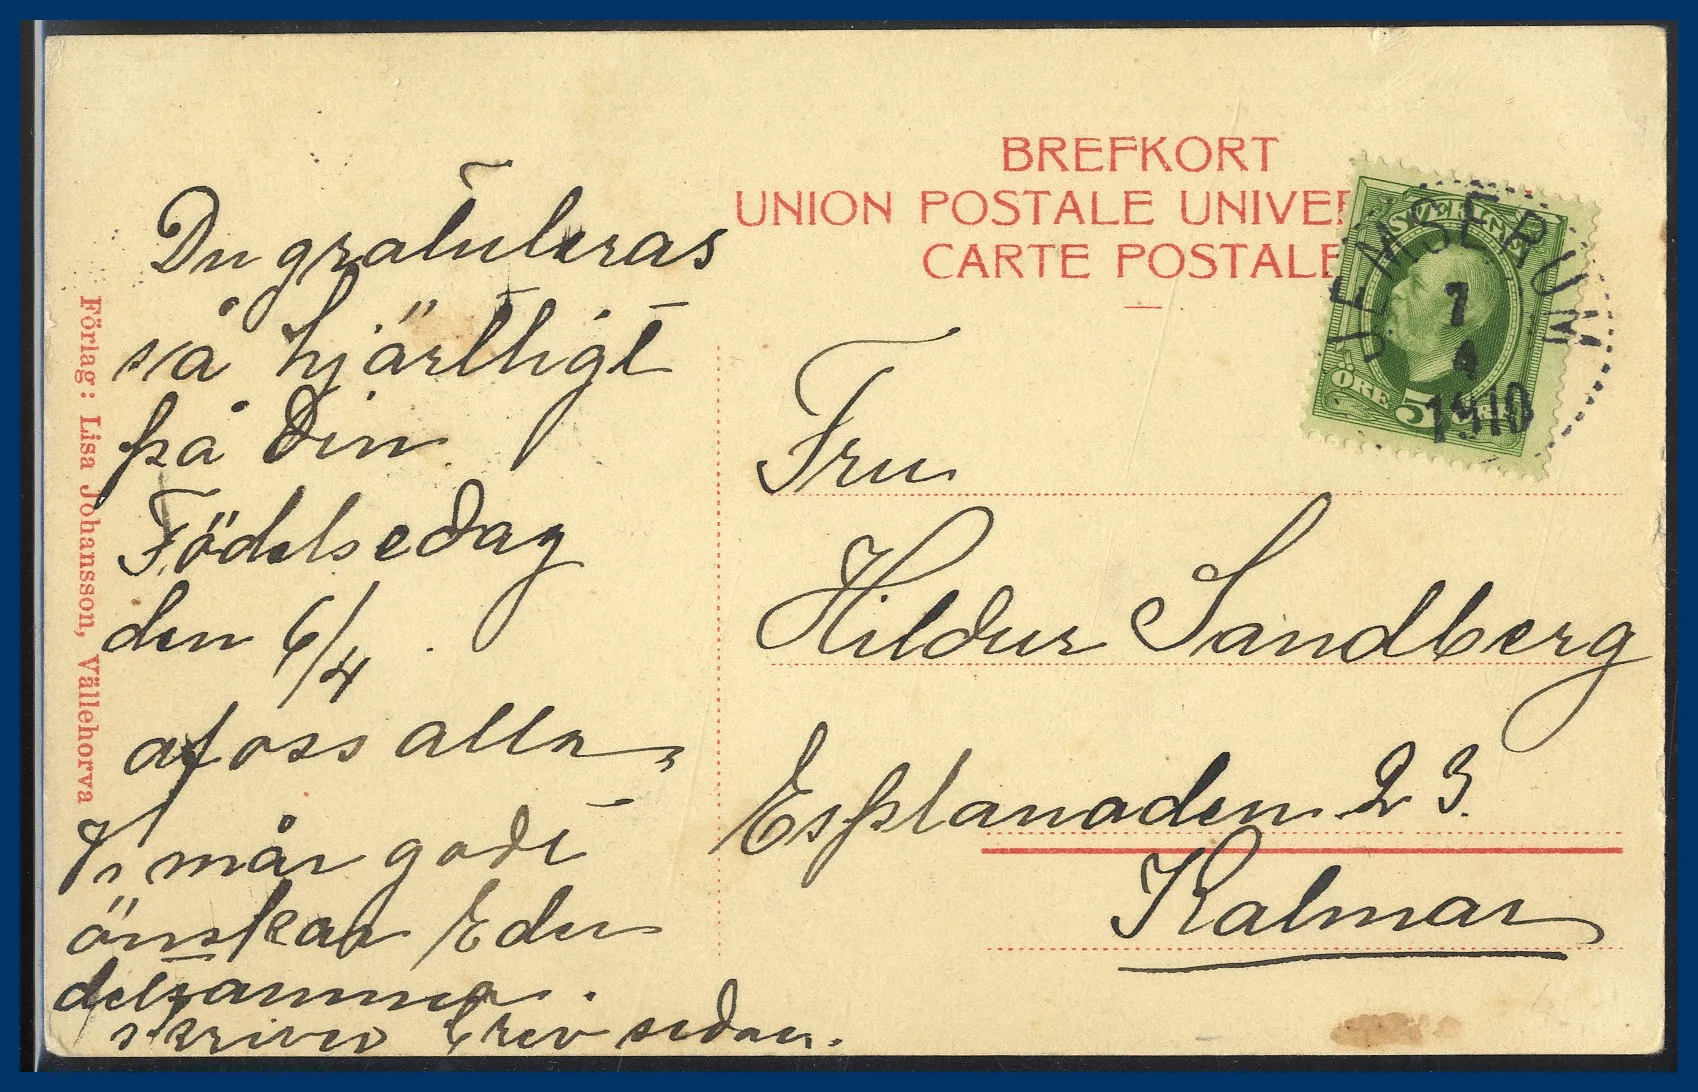 BREFKORT
UNION POSTALE UNIVER
CARTE POSTALE
SVERIGE
ÖRE 5
JEMSERUM
7
4
1910
Du gratuleras
så hjärtligt
på Din
Födelsedag
den 6/4
af oss alla
Vi mår godt
önskar Eder
detsamma.
skriver brev sedan.
Fru
Hildur Sandberg
Esplanaden 23.
Kalmar
Förlag: Lisa Johansson, Vällehorva